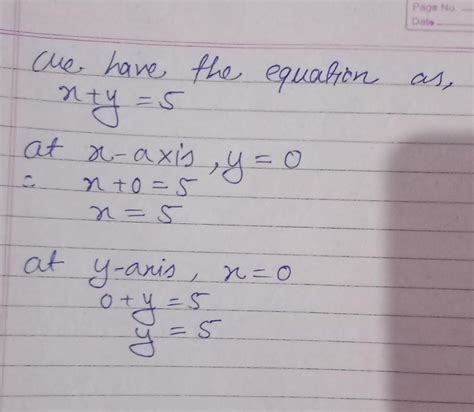 Page No.
Date
we have the equation as,
x+y=5
at x-axis, y=0
= x+0=5
x=5
at y-axis, x=0
0+y=5
y=5